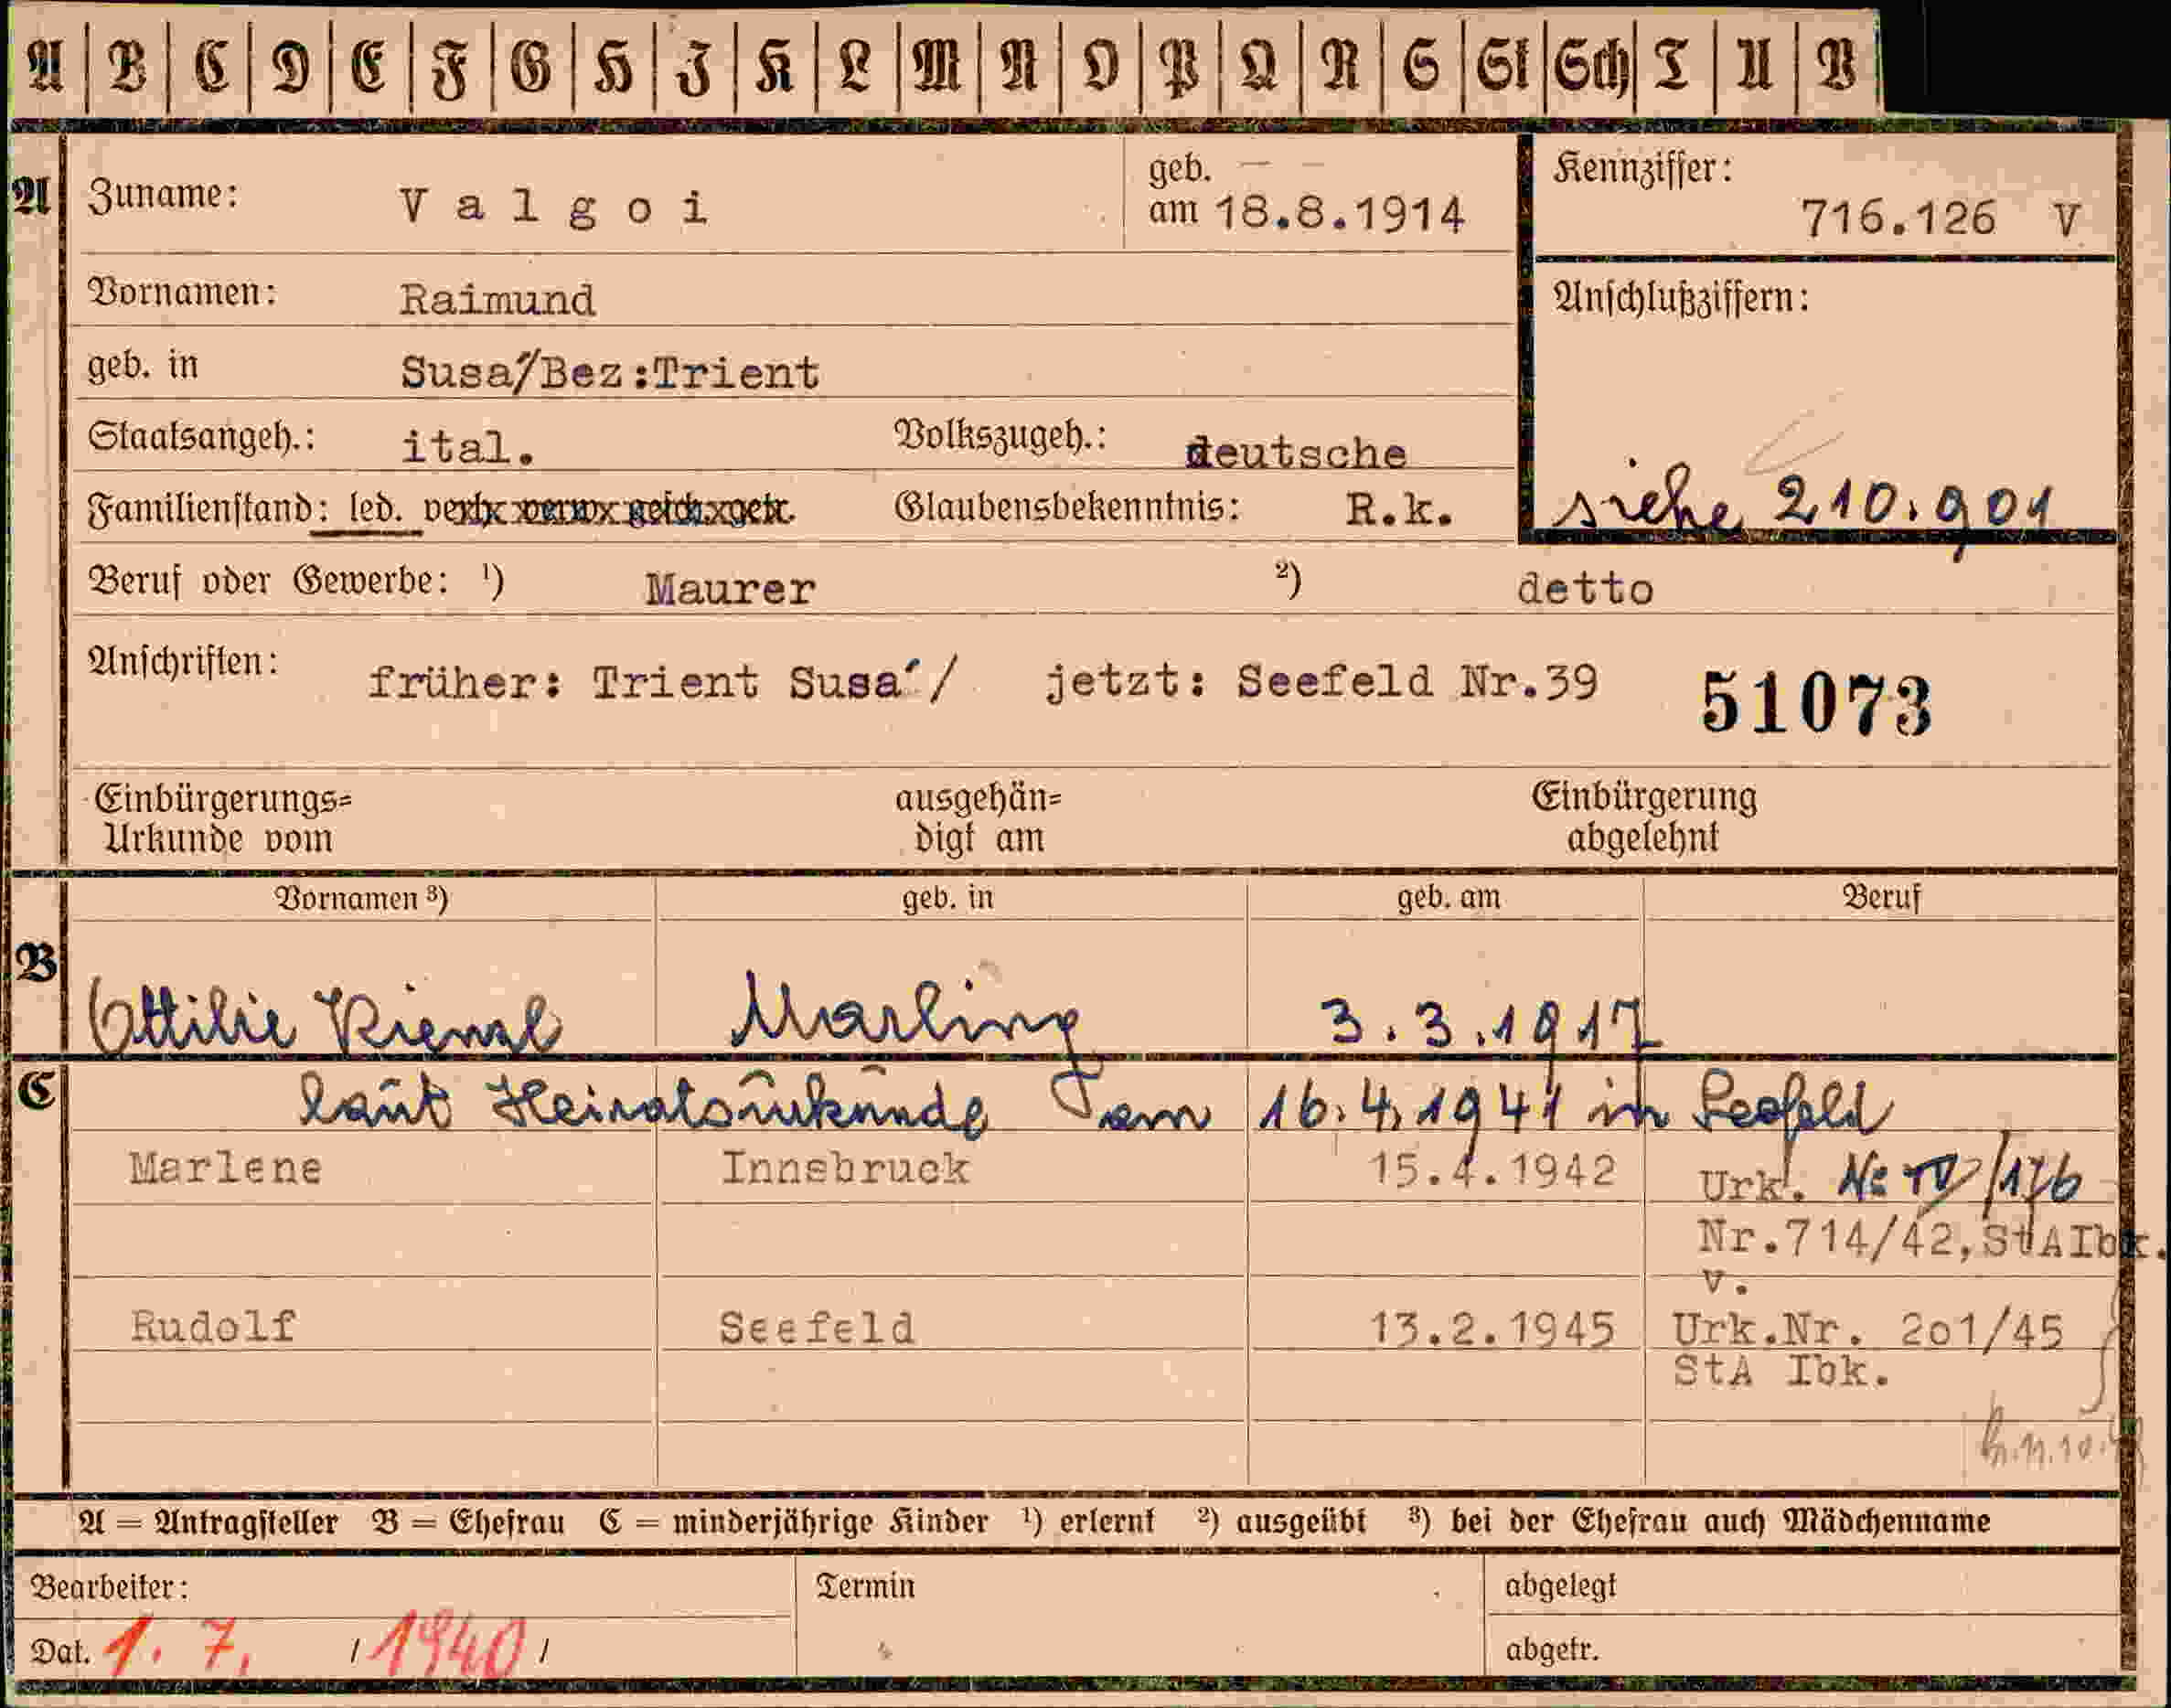 A B C D E F G H J K L M N O P Q R S St Sch T U V
A Zuname: Valgoi geb. am 18.8.1914 Kennziffer: 716.126 V
Vornamen: Raimund Anschlußziffern:
geb. in Susa/Bez:Trient
Staatsangeh.: ital. Volkszugeh.: deutsche
Familienstand: led. Glaubensbekenntnis: R.k. siehe 210.901
Beruf oder Gewerbe: ¹) Maurer ²) detto
Anschriften: früher: Trient Susa´/ jetzt: Seefeld Nr.39 51073
Einbürgerungs= ausgehän= Einbürgerung
Urkunde vom digt am abgelehnt
Vornamen ³) geb. in geb. am Beruf
B Ottilie Kienzl Marling 3.3.1917
C laut Heiratsurkunde vom 16.4.1941 in Seefeld
Marlene Innsbruck 15.4.1942 Urk. No IV/176
Nr.714/42,StAIbk.
v.
Rudolf Seefeld 13.2.1945 Urk.Nr. 201/45
StA Ibk.
A = Antragsteller B = Ehefrau C = minderjährige Kinder ¹) erlernt ²) ausgeübt ³) bei der Ehefrau auch Mädchenname
Bearbeiter: Termin abgelegt
Dat. 1. 7. / 1940 / abgetr.